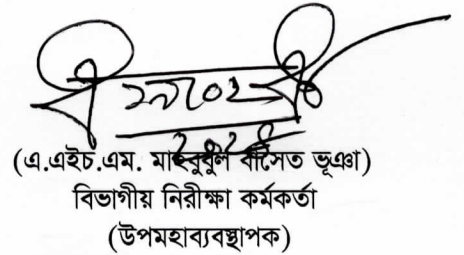 (এ.এইচ.এম. মাহবুবুল বাসেত ভূঞা)
বিভাগীয় নিরীক্ষা কর্মকর্তা
(উপমহাব্যবস্থাপক)